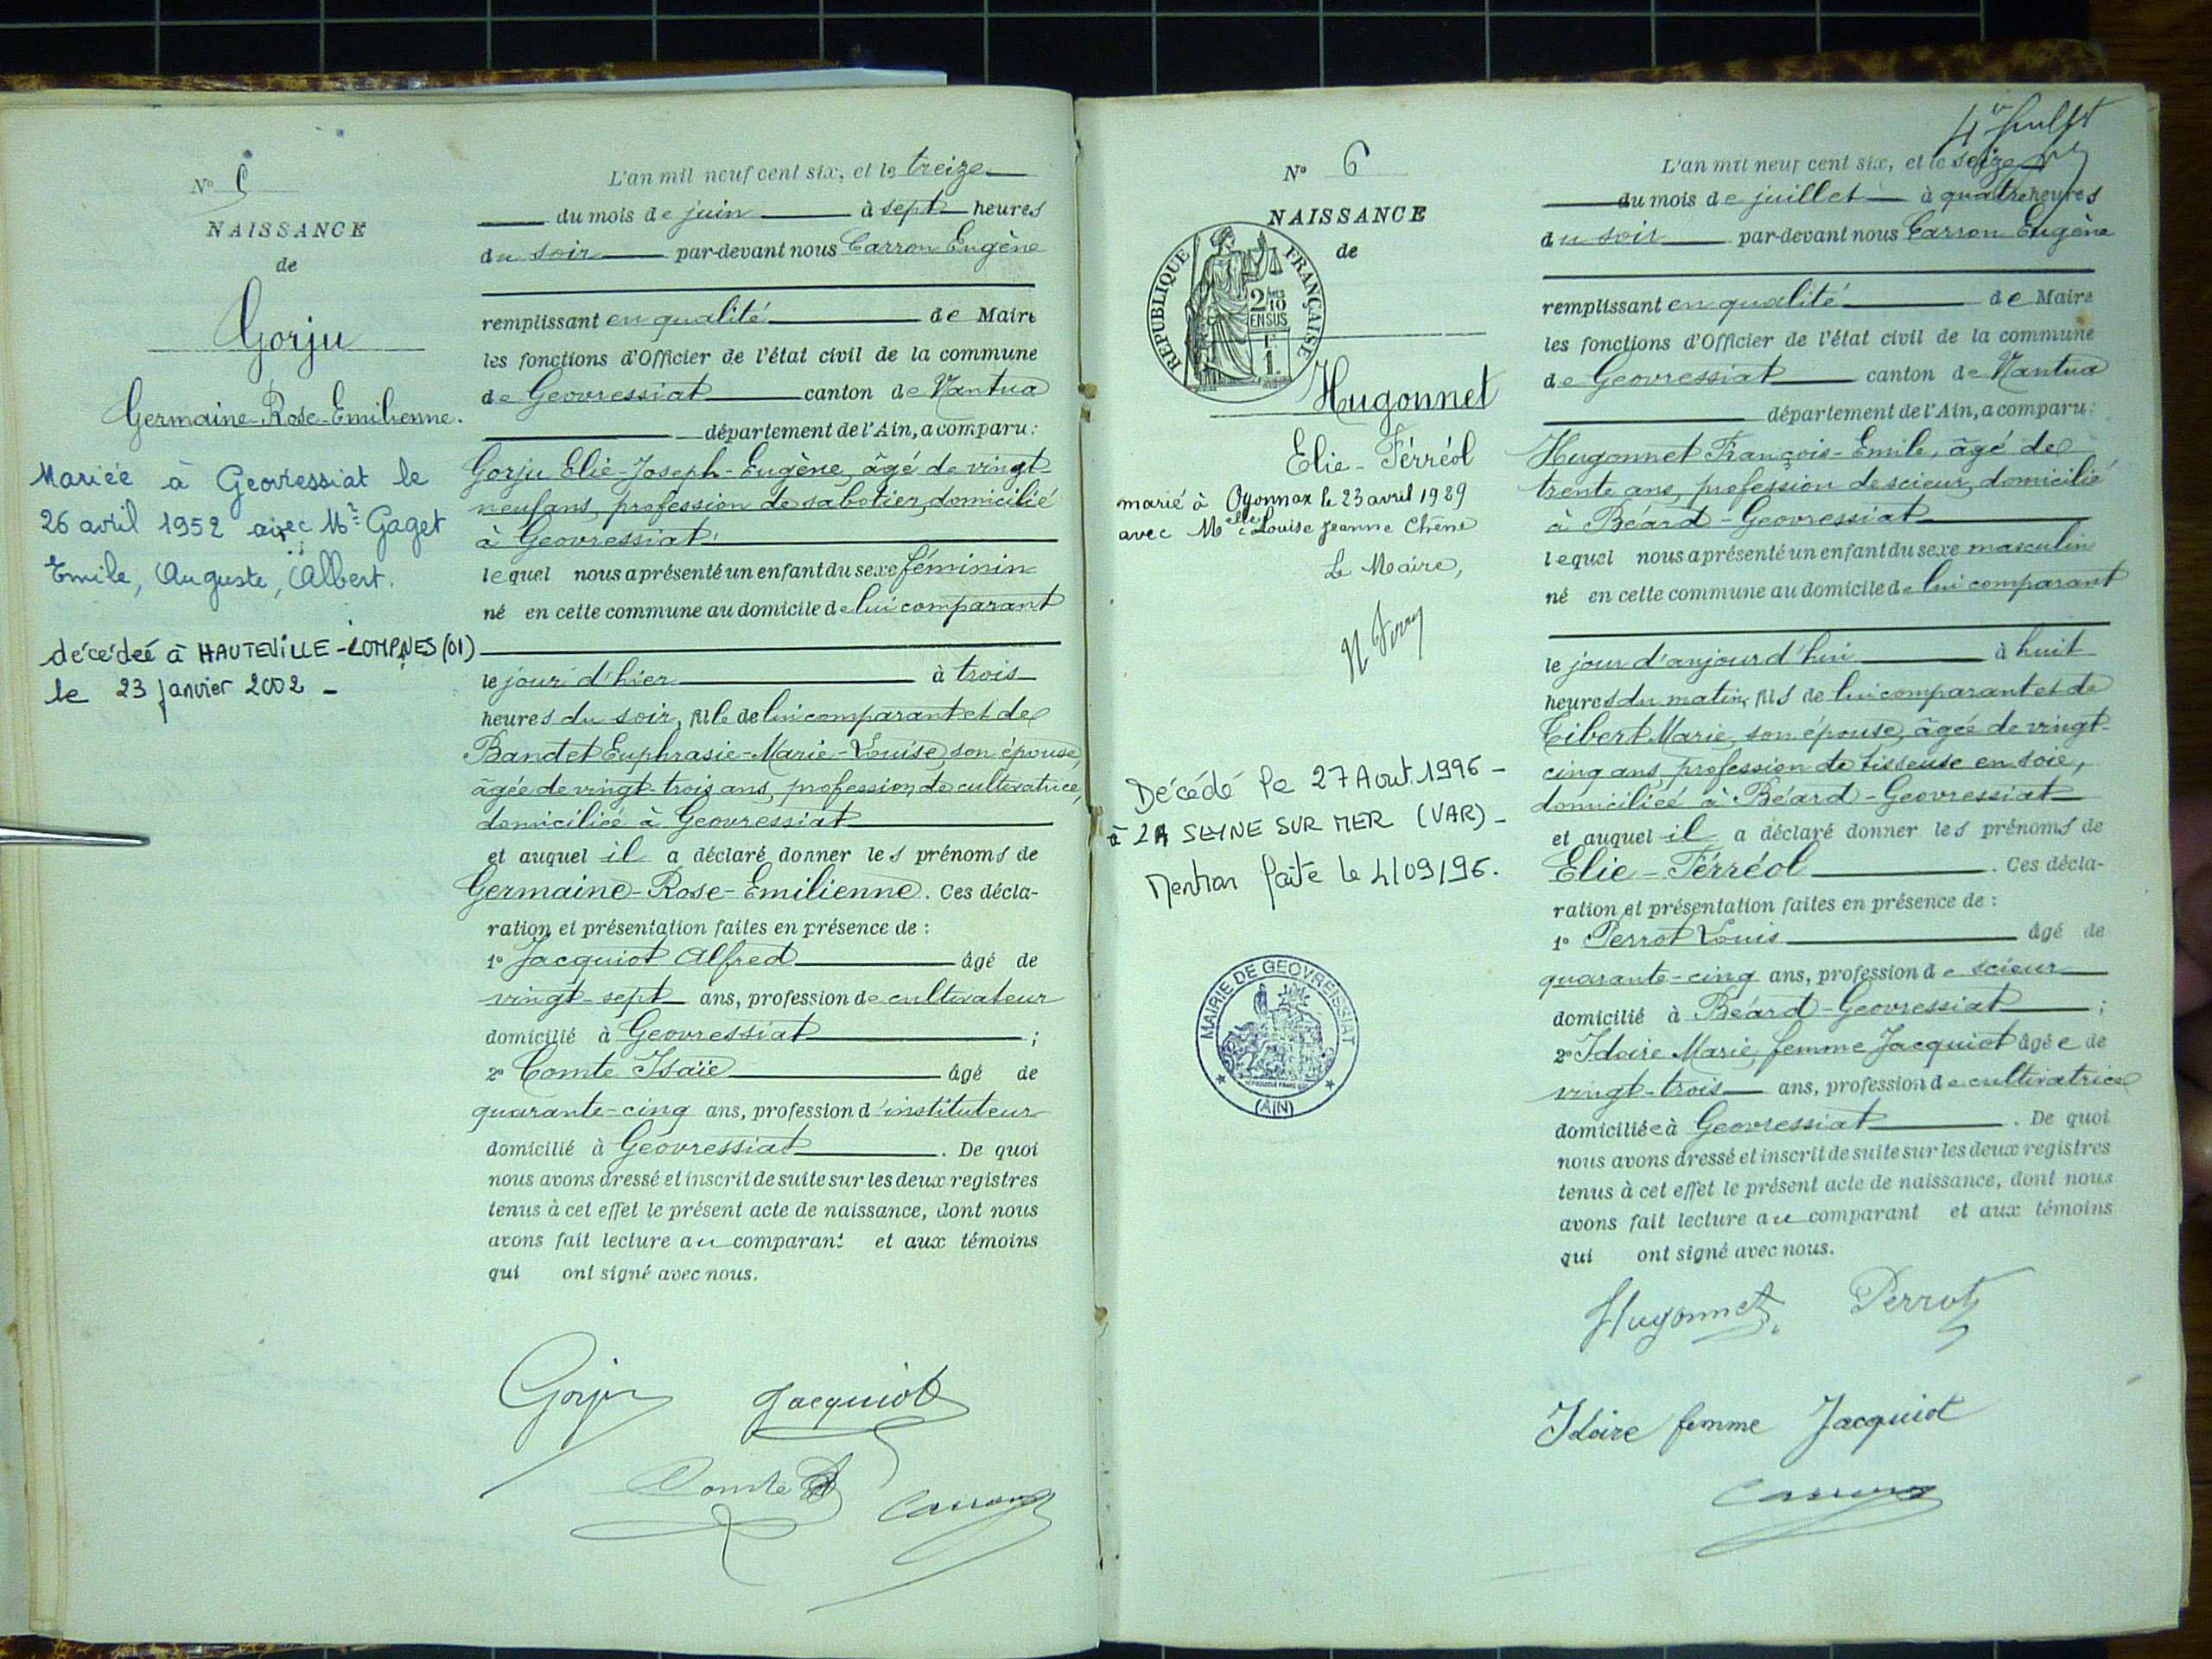 N° 5
NAISSANCE
de
Gorju
Germaine-Rose-Emilienne.
Mariée à Geovressiat le
26 avril 1952 avec Mr Gaget
Emile, Auguste, Albert.
décédée à HAUTEVILLE-LOMPNES (01)
le 23 Janvier 2002 -
L'an mil neuf cent six, et le treize
du mois de juin à sept heures
du soir par-devant nous Carron Eugène
remplissant en qualité de Maire
les fonctions d'Officier de l'état civil de la commune
de Geovressiat canton de Nantua
département de l'Ain, a comparu:
Gorju Elie-Joseph-Eugène, âgé de vingt-
neuf ans, profession de sabotier, domicilié
à Geovressiat
lequel nous a présenté un enfant du sexe féminin
né en cette commune au domicile de lui comparant
le jour d'hier à trois
heures du soir, fille de lui comparant et de
Bandet Euphrasie-Marie-Louise, son épouse,
âgée de vingt-trois ans, profession de cultivatrice,
domiciliée à Geovressiat
et auquel il a déclaré donner les prénoms de
Germaine-Rose-Emilienne. Ces décla-
ration et présentation faites en présence de :
1° Jacquiot Alfred âgé de
vingt-sept ans, profession de cultivateur
domicilié à Geovressiat ;
2° Comte Isaïe âgé de
quarante-cinq ans, profession d'instituteur
domicilié à Geovressiat. De quoi
nous avons dressé et inscrit de suite sur les deux registres
tenus à cet effet le présent acte de naissance, dont nous
avons fait lecture au comparant et aux témoins
qui ont signé avec nous.
Gorju Jacquiot
Comte Carron
4e feuillet
N° 6
NAISSANCE
de
REPUBLIQUE FRANÇAISE
2/10 EN SUS
1
Hugonnet
Elie-Férréol
marié à Oyonnax le 23 avril 1929
avec Melle Louise Jeanne Chêne
Le Maire,
Décédé le 27 Aout 1996 -
à LA SEYNE SUR MER (VAR) -
Mention faite le 4/09/96.
MAIRIE DE GEOVREISSIAT
(AIN)
L'an mil neuf cent six, et le seize
du mois de juillet à quatre heures
du soir par-devant nous Carron Eugène
remplissant en qualité de Maire
les fonctions d'Officier de l'état civil de la commune
de Geovressiat canton de Nantua
département de l'Ain, a comparu:
Hugonnet François-Emile, âgé de
trente ans, profession de scieur, domicilié
à Béard-Geovressiat
lequel nous a présenté un enfant du sexe masculin
né en cette commune au domicile de lui comparant
le jour d'aujourd'hui à huit
heures du matin, fils de lui comparant et de
Tibert Marie, son épouse, âgée de vingt-
cinq ans, profession de tisseuse en soie,
domiciliée à Béard-Geovressiat
et auquel il a déclaré donner les prénoms de
Elie-Férréol. Ces décla-
ration et présentation faites en présence de :
1° Perrot Louis âgé de
quarante-cinq ans, profession de scieur
domicilié à Béard-Geovressiat ;
2° Idoire Marie, femme Jacquiot âgée de
vingt-trois ans, profession de cultivatrice
domiciliée à Geovressiat. De quoi
nous avons dressé et inscrit de suite sur les deux registres
tenus à cet effet le présent acte de naissance, dont nous
avons fait lecture au comparant et aux témoins
qui ont signé avec nous.
Hugonnet Perrot
Idoire femme Jacquiot
Carron